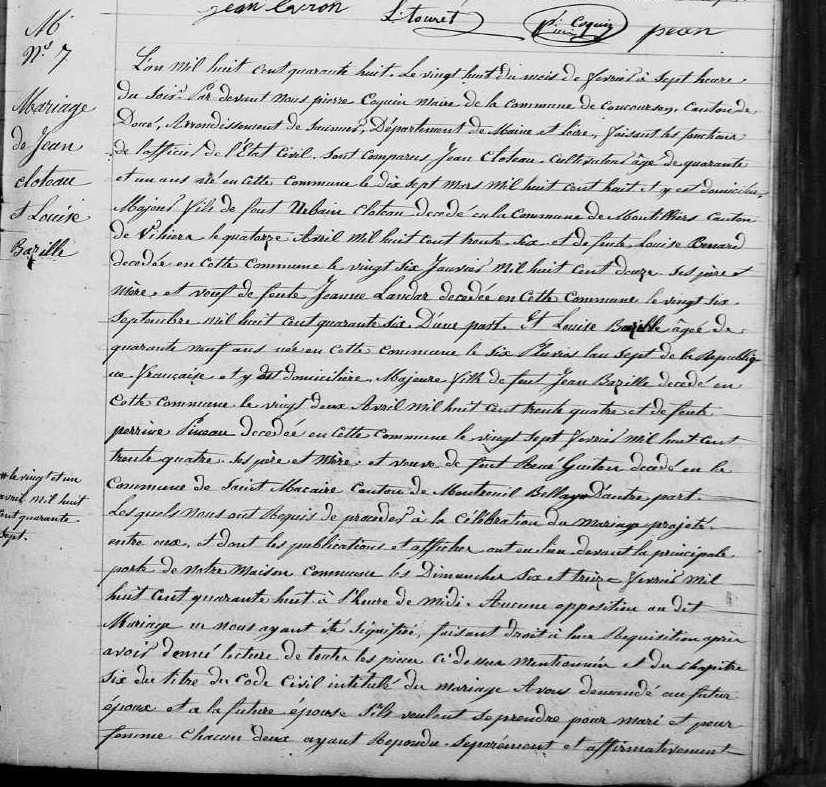 jean Cavron L. Touret Pre Coquin jean
M.
No. 7
Mariage
de Jean
cloteau
et Louise
Bazille
L'an mil huit cent quarante huit. Le vingt huit du mois de fevrier à sept heure
du soir. Par devant nous pierre Coquin Maire de la Commune de Concourson, Canton de
Doué, Arrondissement de Saumur, Département de Maine et Loire, faisant les fonctions
de l'officier de l'État Civil. Sont Comparus Jean Cloteau. Cultivateur âgé de quarante
et un ans né en cette Commune le dix sept Mars mil huit cent huit et y est domicilié,
Majeur fils de feut Urbain Cloteau decedé en la Commune de Montilliers Canton
de Vihiers le quatorze Avril mil huit cent trente six et de feute Louise Benard
decedée en Cette Commune le vingt six Janvier Mil huit Cent douze. Ses père et
Mère, et veuf de feute Jeanne Landar decedée en Cette Commune le vingt six
Septembre mil huit cent quarante six. D'une part. Et Louise Bazille âgée de
quarante neuf ans née en Cette Commune le six Pluvios l'an sept de la Republiq
ue Française et y est domicilière, Majeure fille de feut Jean Bazille decedé en
Cette Commune le vingt deux Avril mil huit cent trente quatre et de feute
perrine Pineau decedée en Cette Commune le vingt sept fevrier mil huit cent
trente quatre. Ses père et Mère. et veuve de feut René Guiton decedé en la
# le vingt et un
avril mil huit
cent quarante
sept.
Commune de Saint Macaire Canton de Montreuil Bellay # D'autre part.
Lesquels nous ont Requis de proceder à la Célébration du mariage projeté
entre eux. et dont les publications et affiches ont eu lieu devant la principale
porte de notre Maison Commune les Dimanches Six et treize fevrier mil
huit cent quarante huit à l'heure de midi. Aucune opposition au dit
Mariage ne nous ayant été signifiée, faisant droit à leur Requisition après
avoir donné lecture de toutes les pieces ci dessus Mentionnées et du chapitre
Six du titre du Code Civil intitulé du mariage Avons demandé au futur
époux et a la future épouse s'ils veulent se prendre pour mari et pour
femme Chacun deux ayant Repondu Separément et affirmativement